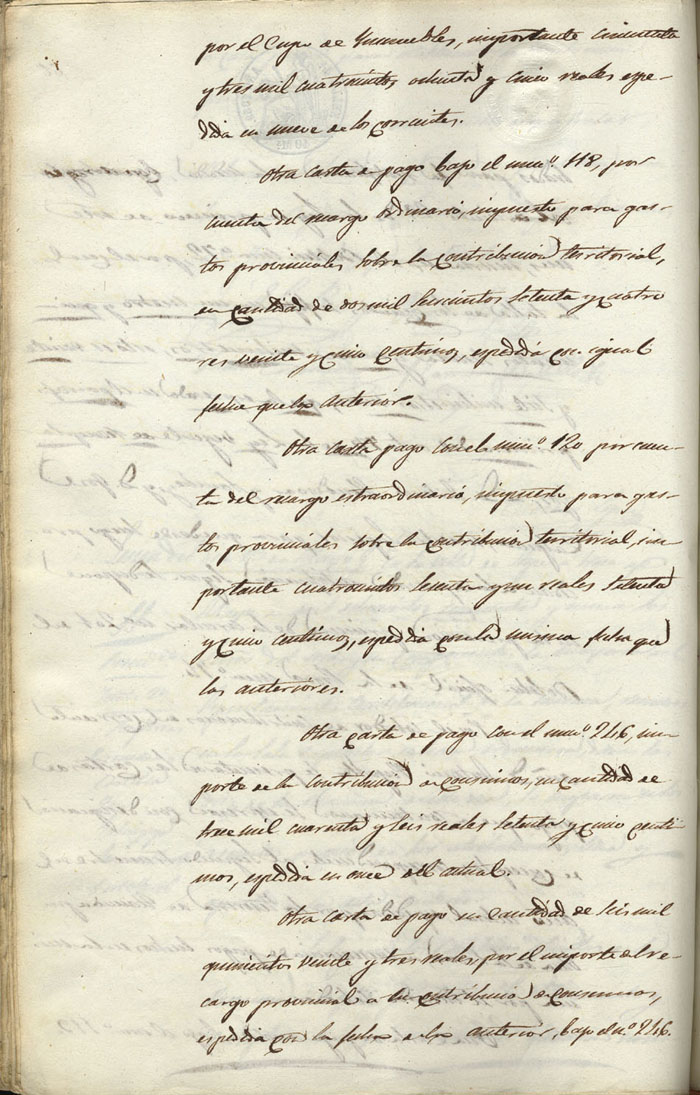 por el Cupo de Ynmuebles, importante cincuenta
y tres mil cuatrocientos ochenta y cinco reales espe-
dida en nueve de los corrientes.
Otra carta de pago bajo el num.º 118, por
cuenta del recargo ordinario, impuesto para gas-
tos provinciales sobre la contribucion territorial,
en cantidad de dos mil seiscientos setenta y cuatro
rs veinte y cinco centimos, espedida con igual
fecha que la anterior.
Otra carta pago con el num.º 120 por cuen-
ta del recargo estraordinario, impuesto para gas-
tos provinciales sobre la contribucion territorial, im-
portante cuatrocientos setenta y un reales setenta
y cinco centimos, espedida con la misma fecha que
las anteriores.
Otra carta de pago con el num.º 246, im-
porte de la contribucion de consumos, en cantidad de
trece mil cuarenta y seis reales setenta y cinco centi-
mos, espedida en once del actual.
Otra carta de pago en cantidad de seis mil
quinientos veinte y tres reales, por el importe del re-
cargo provincial a la contribucion de consumos,
espedida con la fecha de la anterior, bajo el n.º 246.